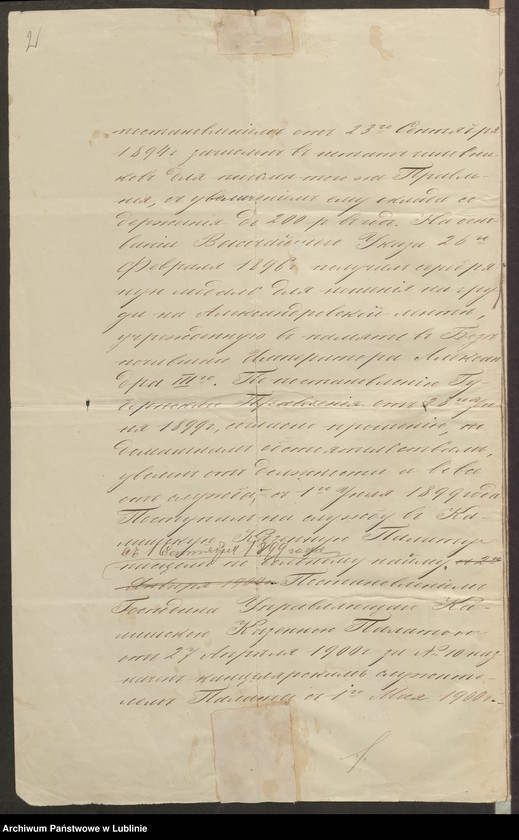 2
постановленіемъ отъ 23го Сентября
1894 г зачисленъ въ штатъ чиновни-
ковъ для письма того же Правле-
нія, съ увеличеніемъ ему оклада со-
держанія до 200 р въ годъ. На осно-
ваніи Высочайшаго Указа 26го
Февраля 1896 г получилъ серебря
ную медаль для ношенія на гру
ди на Александровской лентѣ,
учрежденную въ память въ Бозѣ
почившаго Императора Алексан
дра IIIго. По постановленію Гу
бернскаго Правленія отъ 28
ня 1899 г, согласно прошенію, по
домашнимъ обстоятельствамъ,
уволенъ отъ должности и вовсе
отъ службы, съ 1го 1899 года
Поступилъ на службу въ Ка-
лишскую Казенную Палату
съ 1 Сентября 1899 года
писцомъ по вольному найму, съ 2го
Января 1900 г. Постановленіемъ
Господина Управляющаго Ка-
лишскою Казенною Палатою
отъ 27 Апрѣля 1900 г за № 10 наз
наченъ канцелярскимъ служите-
лемъ Палаты съ 1го Мая 1900 г.
Archiwum Państwowe w Lublinie